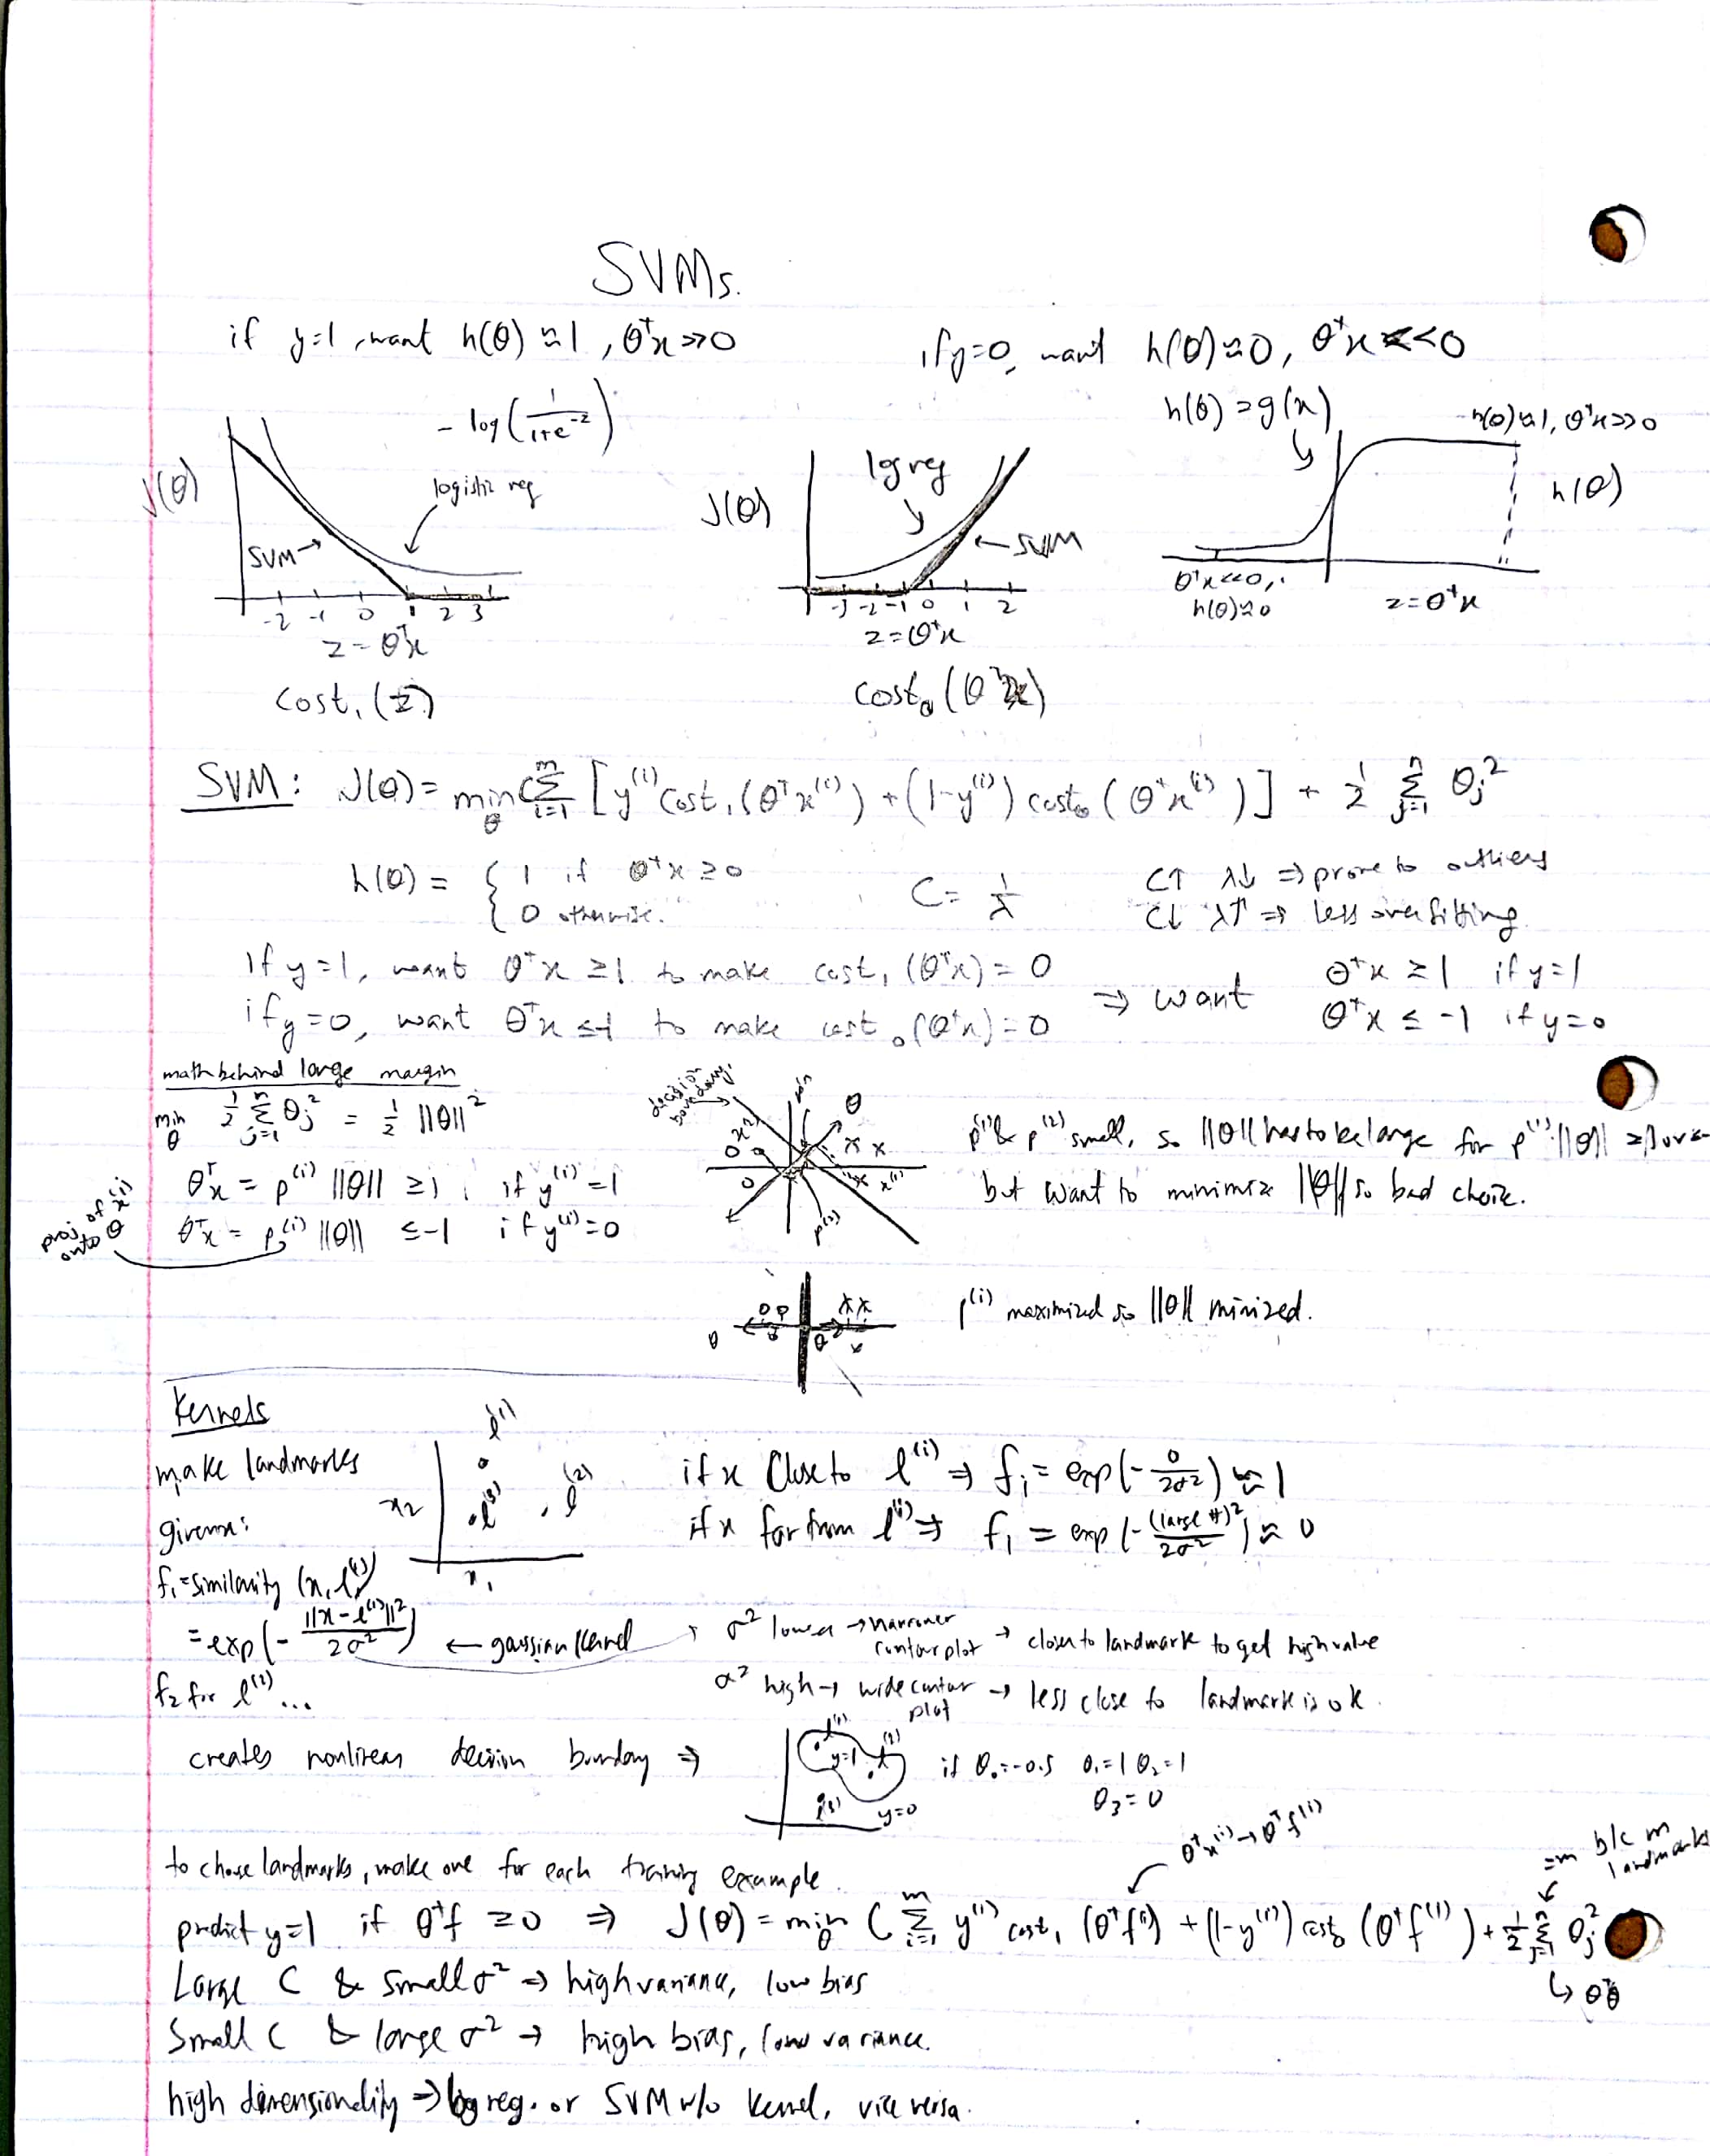 SVMs.
if y=1, want h(θ) ≈ 1, θᵀx >> 0
if y=0, want h(θ) ≈ 0, θᵀx << 0
- log(1/(1+e^-z))
J(θ)
logistic reg
SVM →
-2 -1 0 1 2 3
z = θᵀx
cost₁(z)
J(θ)
log reg
← SVM
-3 -2 -1 0 1 2
z = θᵀx
cost₀(θᵀx)
h(θ) = g(x)
h(θ) ≈ 1, θᵀx >> 0
h(θ)
θᵀx << 0,
h(θ) ≈ 0
z = θᵀx
SVM: J(θ) = min_θ C Σ_{i=1}^m [y⁽ⁱ⁾ cost₁(θᵀx⁽ⁱ⁾) + (1-y⁽ⁱ⁾) cost₀(θᵀx⁽ⁱ⁾)] + 1/2 Σ_{j=1}^n θⱼ²
h(θ) = { 1 if θᵀx ≥ 0
0 otherwise.
C = 1/λ
C↑ λ↓ ⇒ prone to outliers
C↓ λ↑ ⇒ less overfitting.
If y=1, want θᵀx ≥ 1 to make cost₁(θᵀx) = 0
if y=0, want θᵀx ≤ -1 to make cost₀(θᵀx) = 0
⇒ want
θᵀx ≥ 1 if y=1
θᵀx ≤ -1 if y=0
math behind large margin
min_θ 1/2 Σ_{j=1}^n θⱼ² = 1/2 ||θ||²
θᵀx = p⁽ⁱ⁾ ||θ|| ≥ 1, if y⁽ⁱ⁾ = 1
θᵀx = p⁽ⁱ⁾ ||θ|| ≤ -1 if y⁽ⁱ⁾ = 0
proj of x⁽ⁱ⁾
onto θ
decision
boundary
θ
x⁽¹⁾
p⁽²⁾
p⁽¹⁾ & p⁽²⁾ small, so ||θ|| has to be large for p⁽¹⁾·||θ|| ≥ 1
but want to minimize ||θ|| so bad choice.
p⁽ⁱ⁾ maximized so ||θ|| minized.
θ
Kernels
make landmarks
given x:
f₁ = similarity (x, l⁽¹⁾)
= exp(- ||x - l⁽¹⁾||² / 2σ²) ← gaussian kernel
f₂ for l⁽²⁾ ...
x₂
x₁
l⁽¹⁾
l⁽²⁾
l⁽³⁾
if x Close to l⁽ⁱ⁾ ⇒ f₁ = exp(- 0/2σ²) ≈ 1
if x far from l⁽ⁱ⁾ ⇒ f₁ = exp(- (large #)²/2σ²) ≈ 0
σ² lower → narrower contour plot → closer to landmark to get high value
σ² high → wide contour plot → less close to landmark is ok.
creates nonlinear decision boundary ⇒
l⁽¹⁾
l⁽²⁾
y=1
l⁽³⁾
y=0
if θ₀ = -0.5 θ₁ = 1 θ₂ = 1
θ₃ = 0
to chose landmarks, make one for each training example.
θᵀx⁽ⁱ⁾ → θᵀf⁽ⁱ⁾
=m b/c m
landmarks
predict y=1 if θᵀf ≥ 0 ⇒ J(θ) = min_θ C Σ_{i=1}^m y⁽ⁱ⁾ cost₁(θᵀf⁽ⁱ⁾) + (1-y⁽ⁱ⁾) cost₀(θᵀf⁽ⁱ⁾) + 1/2 Σ_{j=1}^n θⱼ²
↳ θᵀθ
Large C & small σ² ⇒ high variance, low bias
Small C & large σ² → high bias, low variance.
high dimensionality ⇒ log reg. or SVM w/o kernel, vice versa.